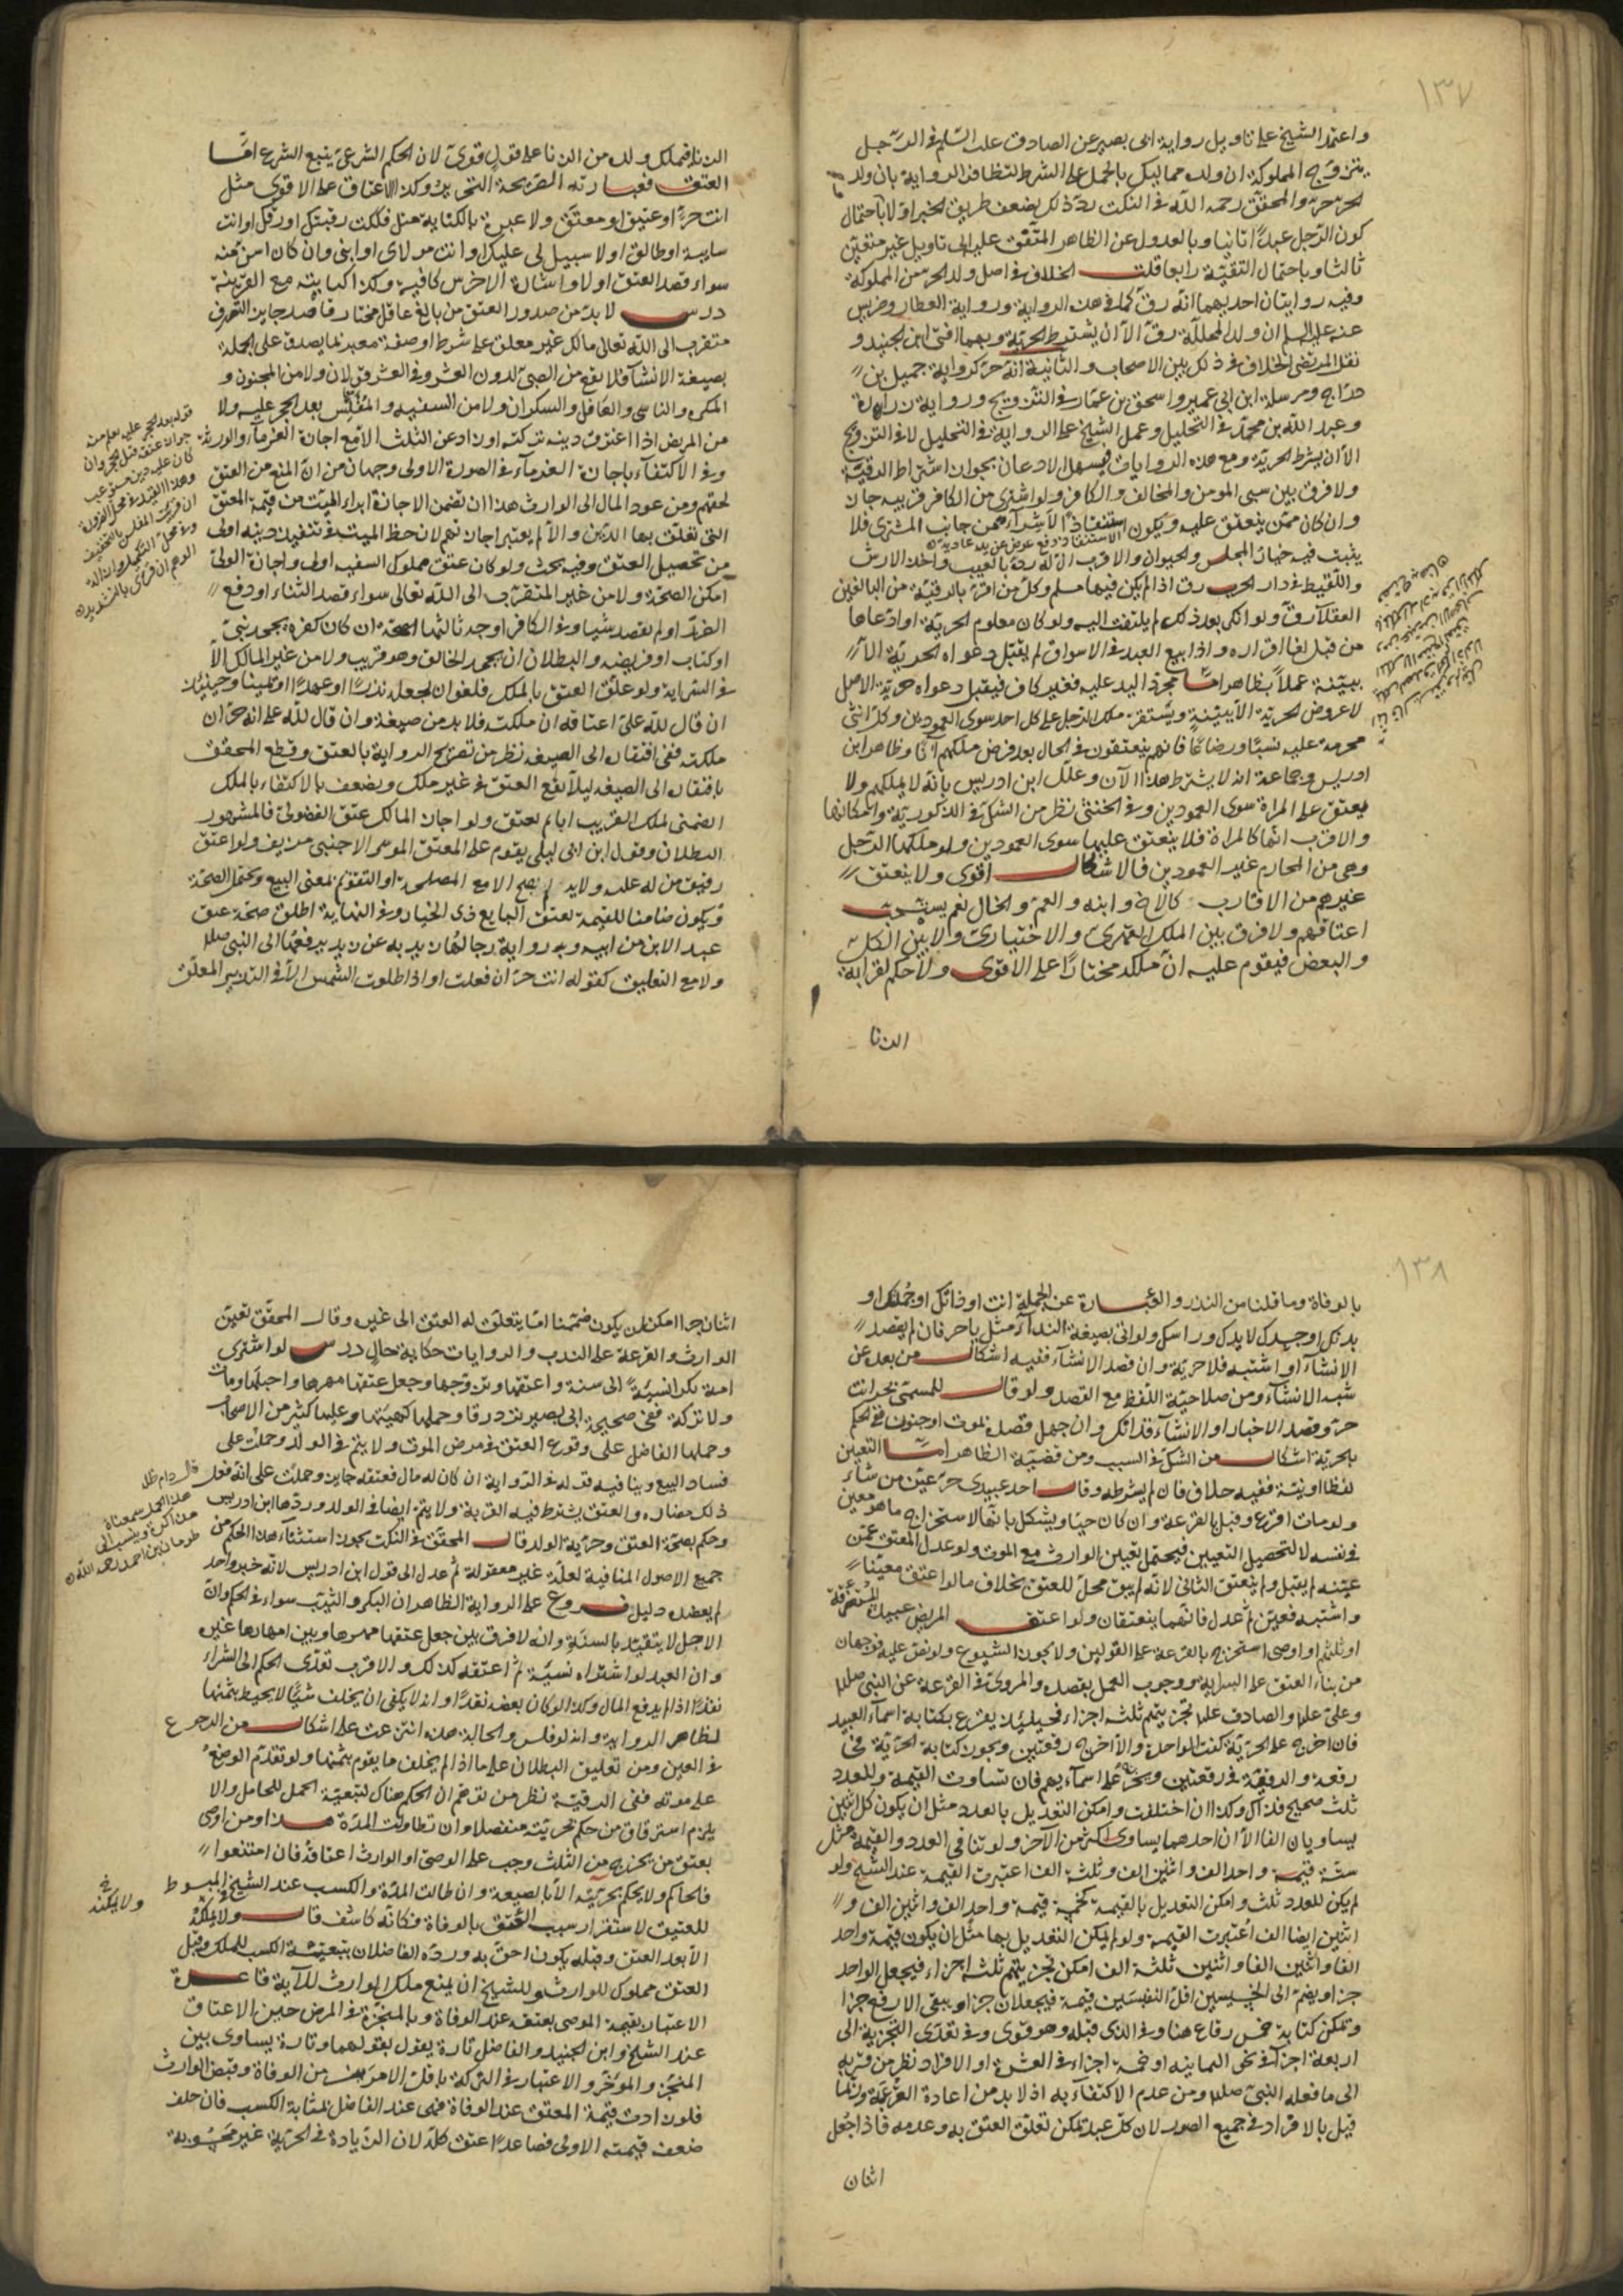 ١٣٧
واعتمد الشيخ على تاويل رواية ابى بصير عن الصادق عليه السلم فى الرجل
يتزوج المملوكة ان ولده مماليك بالحمل على الشرط لتظافر الرواية بان ولد
الحر حر والمحقق رحمه الله فى النكت رد ذلك بضعف طريق الخبر اولا باحتمال
كون الرجل عبدا ثانيا وبالعدول عن الظاهر المتفق عليه الى تاويل غير متيقن
ثالثا وباحتمال التقية رابعا قلت الخلاف فى اصل ولد الحر من المملوكة
وفيه روايتان احديهما انه رق كما فى هذه الرواية ورواية العطار وضريس
عنه عليه السلم ان ولد المحللة رق الا ان يشترط الحرية وبهما افتى ابن الجنيد و
نقل المرتضى الخلاف فى ذلك بين الاصحاب والثانية انه حر كرواية جميل بن
دراج ومرسلة ابن ابى عمير واسحق بن عمار فى التزويج ورواية زرارة
وعبد الله بن محمد فى التحليل وعمل الشيخ على الرواية فى التحليل لا فى التزويج
الا ان يشرط الحرية ومع هذه الروايات فيسهل الاذعان بجواز اشتراط الرقية
ولا فرق بين سبى المومن والمخالف والكافر ولو اشترى من الكافر قريبه جاز
وان كان ممن ينعتق عليه ويكون استنقاذا لا شراء فمن جانب المشترى فلا
الاستنقاذ دفع عوض عن يد عادية
يثبت فيه خيار المجلس والحيوان والاقرب ان له رده بالعيب واخذ الارش
واللقيط فى دار الحرب رق اذا لم يكن فيها مسلم وكل من اقر بالرقية من البالغين
العقلاء رق ولو انكر بعد ذلك لم يلتفت اليه ولو كان معلوم الحرية او ادعاها
من قبل لغا اقراره واذا بيع العبد فى الاسواق لم يقبل دعواه الحرية الا
ببينة عملا بظاهر اما مجرد اليد عليه فغير كاف فيقبل دعواه حرية الاصل
لا عروض الحرية الا ببينة ويستقر ملك الرجل على كل احد سوى العمودين وكل انثى
محرمة عليه نسبا ورضاعا فانهم ينعتقون فى الحال بعد فرض ملكهم آنا وظاهر ابن
ادريس وجماعة انه لا يشترط هذا الآن وعلل ابن ادريس بانه لا يملكهم ولا
يعتق على المراة سوى العمودين وفى الخنثى نظر من الشك فى الذكورية وامكانها
والاقرب انها كالمراة فلا ينعتق عليها سوى العمودين ولو ملكها الرجل
وهى من المحارم غير العمودين فالاشكال اقوى ولا ينعتق
غيرهم من الاقارب كالاخ وابنه والعم والخال نعم يستحب
اعتاقهم ولا فرق بين الملك القهرى والاختيارى ولا بين الكل
والبعض فيقوم عليه ان ملكه مختارا على الاقوى ولا حكم لقرابة
الزنا
الزنا فيملك ولده من الزنا على قول قوى لان الحكم الشرعى يتبع الشرع اما
العتق فعبارته الصريحة التحرير وكذا الاعتاق على الاقوى مثل
انت حر او عتيق او معتق ولا عبرة بالكناية مثل فككت رقبتك او رقك او انت
سايبة او طالق او لا سبيل لى عليك او انت مولاى او ابنى وان كان اسن منه
سواء قصد العتق او لا واشارة الاخرس كافية وكذا كتابته مع القرينة
درس لا بد من صدور العتق من بالغ عاقل مختار قاصد جايز التصرف
متقرب الى الله تعالى مالك غير معلق على شرط او صفة معبر بما يصدق على الجملة
بصيغة الانشاء فلا يقع من الصبى لدون العشر وفى العشر قولان ولا من المجنون و
المكره والناسى والغافل والسكران ولا من السفيه والمفلس بعد الحجر عليه ولا
من المريض اذا اغترق دينه تركته او زاد عن الثلث الا مع اجازة الغرماء والورثة
وفى الاكتفاء باجازة الغرماء فى الصورة الاولى وجهان من ان المنع من العتق
لحقهم ومن عود المال الى الوارث هذا ان تضمن الاجازة ابراء الميت من قيمة المعتق
التى تعلق بها الدين والا لم يعتبر اجازتهم لان حظ الميت فى تنفيذ دينه اولى
من تحصيل العتق وفيه بحث ولو كان عتق مملوك السفيه اولى واجازه الولى
امكن الصحة ولا من غير المتقرب الى الله تعالى سواء قصد الثناء او دفع
الضرر او لم يقصد شيا وفى الكافر اوجه ثالثها الصحة ان كان كفره بجحد نبى
او كتاب او فريضة والبطلان ان يجحد الخالق وهو قريب ولا من غير المالك الا
فى السراية ولو علق العتق بالملك فلغو ان لم يجعله نذرا او عهدا او يمينا وحينئذ
ان قال لله على اعتاقه ان ملكته فلا بد من صيغة وان قال لله على انه حر ان
ملكته ففى افتقاره الى الصيغة نظر من تصريح الرواية بالعتق وقطع المحقق
بافتقاره الى الصيغة ليلا يقع العتق فى غير ملك ويضعف بالاكتفاء بالملك
الضمنى لملك القريب اباه لعتق ولو اجاز المالك عتق الفضولى فالمشهور
البطلان وقول ابن ابى ليلى يقوم على المعتق الموسر الاجنبى مزيف ولو اعتق
رقيق من له عليه ولاية لم يصح الا مع المصلحة او التقويم بمعنى البيع ويحتمل الصحة
ويكون ضامنا للقيمة لعتق البايع ذى الخيار وفى النهاية اطلق صحة عتق
عبد الابن من ابيه وبه رواية رجالها زيدية عن زيد يرفعها الى النبى صلى
ولا مع التعليق كقوله انت حر ان فعلت او اذا طلعت الشمس الا فى التدبير المعلق
قوله بعد الحجر عليه يعلم منه
جواز عتقه قبل الحجر وان
كان عليه دين مستوعب
وهذا القيد فى محل الضرورة
ان قرئت المفلس بالتخفيف
وفى محل التكميل وازالة
الوهم ان قرئ بالتشديد
١٣٨
بالوفاة وما قلنا من النذر والعبارة عن الجملة انت او ذاتك او جملتك او
بدنك او جسدك لا يدك وراسك ولو اتى بصيغة النداء مثل يا حر فان لم يقصد
الانشاء او اشتبه فلا حرية وان قصد الانشاء ففيه اشكال من بعده عن
شبه الانشاء ومن صلاحية اللفظ مع القصد ولو قال للمسمى بحر انت
حر وقصد الاخبار او الانشاء فذاك وان جهل قصده بموت او جنون ففى الحكم
بحريته اشكال من الشك فى السبب ومن قضية الظاهر اما التعيين
لفظا او نية ففيه خلاف فان لم يشرطه وقال احد عبيدى حر عين من شاء
ولو مات اقرع وقيل بالقرعة وان كان حيا ويشكل بانها لاستخراج ما هو معين
فى نفسه لا لتحصيل التعيين فيحتمل تعيين الوارث مع الموت ولو عدل المعتق عمن
عينه لم يقبل ولم ينعتق الثانى لانه لم يبق محل للعتق بخلاف ما لو اعتق معينا
واشتبه فعين ثم عدل فانهما ينعتقان ولو اعتق المريض عبيده المستغرقة
او ثلثهم او اوصى استخرج بالقرعة على القولين ولا يجوز الشيوع ولو نص عليه فوجهان
من بناء العتق على السراية ووجوب العمل بقصده والمروى فى القرعة عن النبى صلى
وعلى عليه والصادق عليه تجزيتهم ثلثة اجزاء فحينئذ يقرع بكتابة اسماء العبيد
فان اخرج على الحرية كفت الواحدة والا اخرج رقعتين ويجوز كتابة الحرية فى
رقعة والرقية فى رقعتين ويخرج على اسمائهم فان تساوت القيمة وللعدد
ثلث صحيح فذاك وكذا ان اختلفت وامكن التعديل بالعدد مثل ان يكون كل اثنين
يساويان الفا الا ان احدهما يساوى اكثر من الآخر ولو تنافى العدد والقيمة مثل
ستة قيمة واحد الف واثنين الف وثلثة الف اعتبرت القيمة عند الشيخ ولو
لم يكن للعدد ثلث وامكن التعديل بالقيمة كخمسة قيمة واحد الف واثنين الف و
اثنين ايضا الف اعتبرت القيمة ولو لم يمكن التعديل بها مثل ان يكون قيمة واحد
الفا واثنين الفا واثنين ثلثة الف امكن تجزيتهم ثلثة اجزاء فيجعل الواحد
جزا ويضم الى الخسيسين اقل النفيسين قيمة فيجعلان جزا ويبقى الارفع جزا
ويمكن كتابة خمس رقاع هنا وفى الذى قبله وهو قوى وفى تعدى التجزية الى
اربعة اجزاء فى نحو الثمانية او خمسة اجزاء فى العشرة او الافراد نظر من قربه
الى ما فعله النبى صلى ومن عدم الاكتفاء به اذ لا بد من اعادة القرعة وربما
قيل بالافراد فى جميع الصور لان كل عبد يمكن تعلق العتق به وعدمه فاذا جعل
اثنان
اثنان جزا امكن ان يكون ضمهما اما يتعلق له العتق الى غيره وقال المحقق تعين
الوارث والقرعة على الندب والروايات حكاية حال درس لو اشترى
امة بكرا نسيئة الى سنة واعتقها وتزوجها وجعل عتقها مهرها واحبلها ومات
ولا تركة ففى صحيحة ابى بصير ترد رقا وحملها كهيئتها وعليها كثير من الاصحاب
وحملها الفاضل على وقوع العتق فى مرض الموت ولا يتم فى الولد وحملت على
فساد البيع وينافيه قوله فى الرواية ان كان له مال فعتقه جايز وحملت على انه فعل
ذلك مضارة والعتق يشترط فيه القربة ولا يتم ايضا فى الولد وردها ابن ادريس
وحكم بصحة العتق وحرية الولد قال المحقق فى النكت يجوز استثناء هذا الحكم من
جميع الاصول المنافية لعلة غير معقولة ثم عدل الى قول ابن ادريس لانه خبر واحد
لم يعضده دليل فروع على الرواية الظاهر ان البكر والثيب سواء فى الحكم وان
الاجل لا يتقيد بالسنة وانه لا فرق بين جعل عتقها مهرها وبين امهارها غيره
وان العبد لو اشتراه نسيئة ثم اعتقه كذلك والاقرب تعدى الحكم الى الشراء
نقدا اذا لم يدفع المال وكذا لو كان بعضه نقدا وانه لا يكفى ان يخلف شيا لا يحيط بثمنها
لظاهر الرواية وانه لو فلس والحالة هذه انتزعت على اشكال من الرجوع
فى العين ومن تعليق البطلان على ما اذا لم يخلف ما يقوم بثمنها ولو تقدم الوضع
على موته ففى الرقية نظر من توهم ان الحكم هناك لتبعية الحمل للحامل والا
يلزم استرقاق من حكم بحريته منفصلا وان تطاولت المدة هذا ومن اوصى
بعتق من يخرج من الثلث وجب على الوصى او الوارث اعتاقه فان امتنعوا
فالحاكم ولا يحكم بحريته الا بالصيغة وان طالت المدة والكسب عند الشيخ فى المبسوط
للعتيق لاستقرار سبب العتق بالوفاة فكانه كاشف قال ولا يملكه
الا بعد العتق وقبله يكون احق به ورده الفاضلان بتبعية الكسب للملك وقبل
العتق مملوك للوارث وللشيخ ان يمنع ملك الوارث للآية قاعدة
الاعتبار بقيمة الموصى بعتقه عند الوفاة وبالمنجزة فى المرض حين الاعتاق
عند الشيخ وابن الجنيد والفاضل تارة يقول بقولهما وتارة يساوى بين
المنجز والمؤخر والاعتبار فى التركة باقل الامرين من الوفاة وقبض الوارث
فلو زادت قيمة المعتق عند الوفاة فهى عند الفاضل بمثابة الكسب فان خلف
ضعف قيمته الاولى فصاعدا عتق كله لان الزيادة فى الحرية غير محسوبة
قال دام ظله
هذا الحمل سمعناه
مذاكرة وينسب الى
طومان بن احمد رحمه الله
ولا يملكه خ